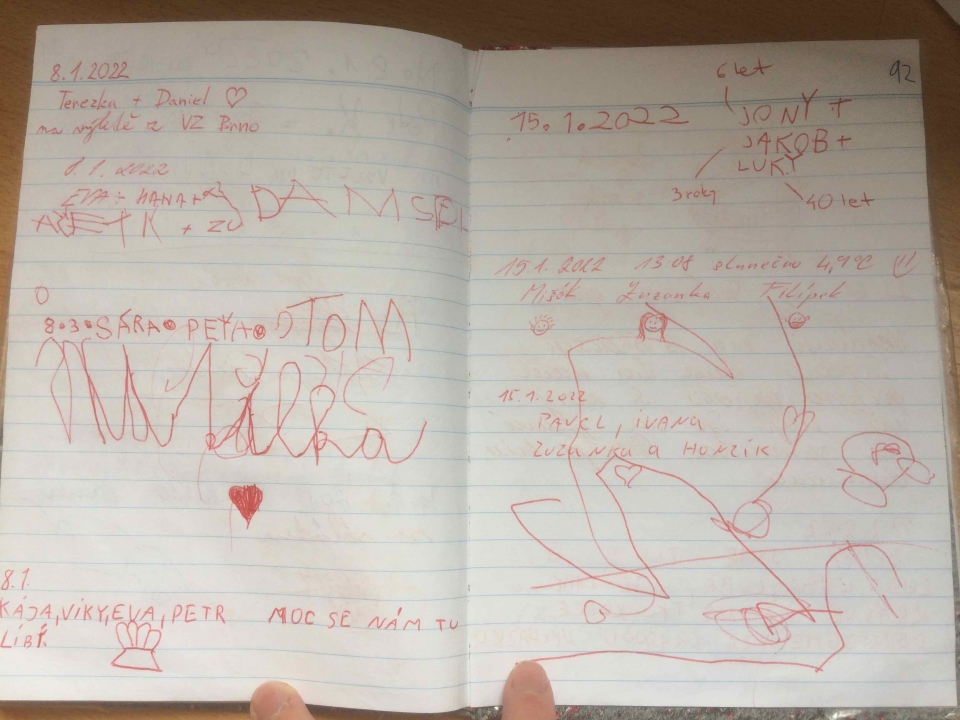 8.1.2022
Terezka + Daniel ♡
na výletě z VZ Brno
8.1. 2022
EVA + HANA +
+ ZU
DAMSEL
8.3. SÁRA PEŤA TOM
Milka
8.1.
KÁJA, VIKY, EVA, PETR MOC SE NÁM TU
LÍBÍ.
92
6 let
15.1.2022
JONY +
JAKOB +
LUKY
3 roky
40 let
15.1. 2022 13 08 slunečno 4,9°C
Míšák Zuzanka Filípek
15.1.2022
PAVEL, IVANA
ZUZANKA a HONZÍK